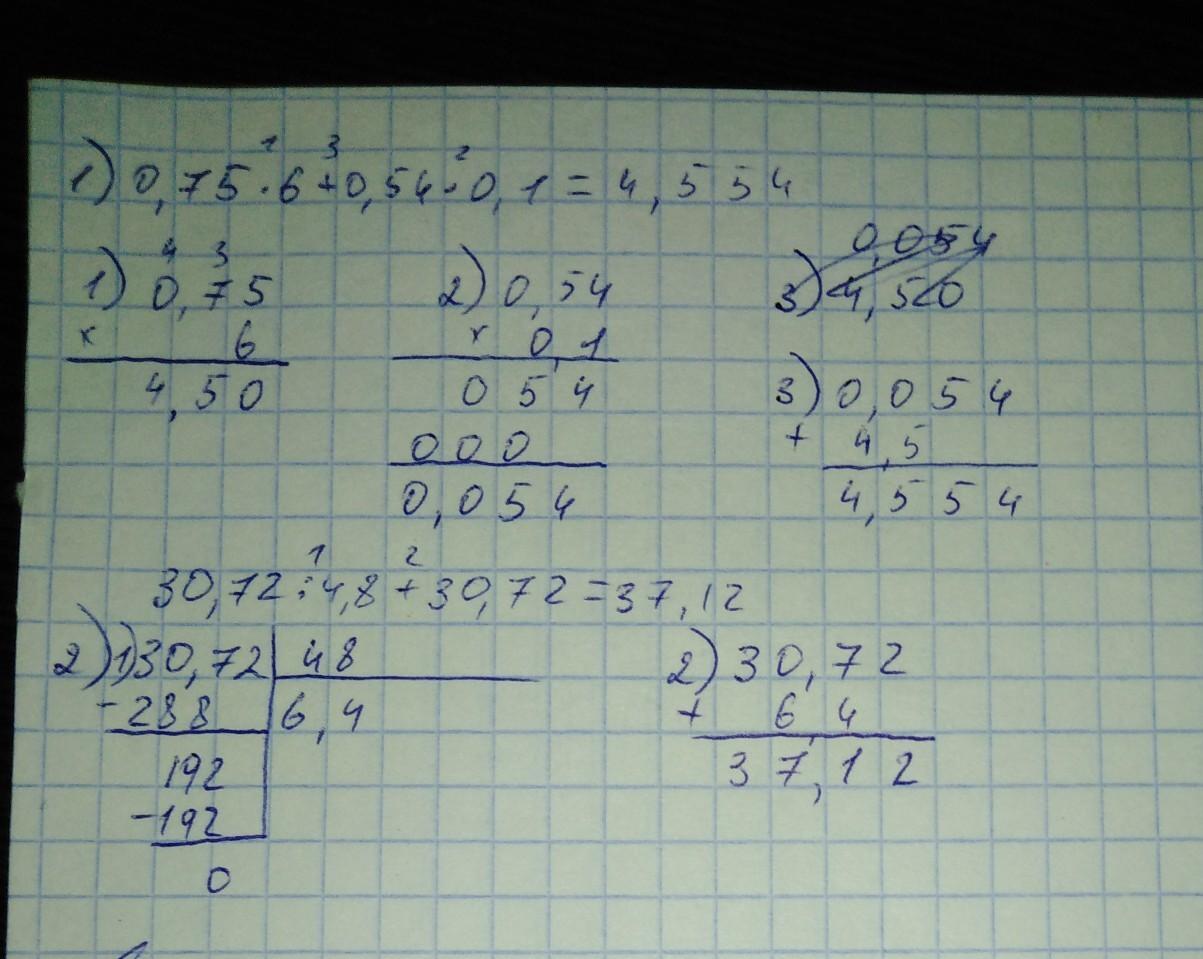 1) 0,75 · 6 + 0,54 · 0,1 = 4,554
1 3 2
1) 0,75
4 3
× 6
4,50
2) 0,54
× 0,1
054
000
0,054
0,054
3) 4,50
3) 0,054
+ 4,5
4,554
1 2
30,72 : 4,8 + 30,72 = 37,12
2) 1) 30,72 48
- 288 6,4
192
- 192
0
2) 30,72
+ 6,4
37,12